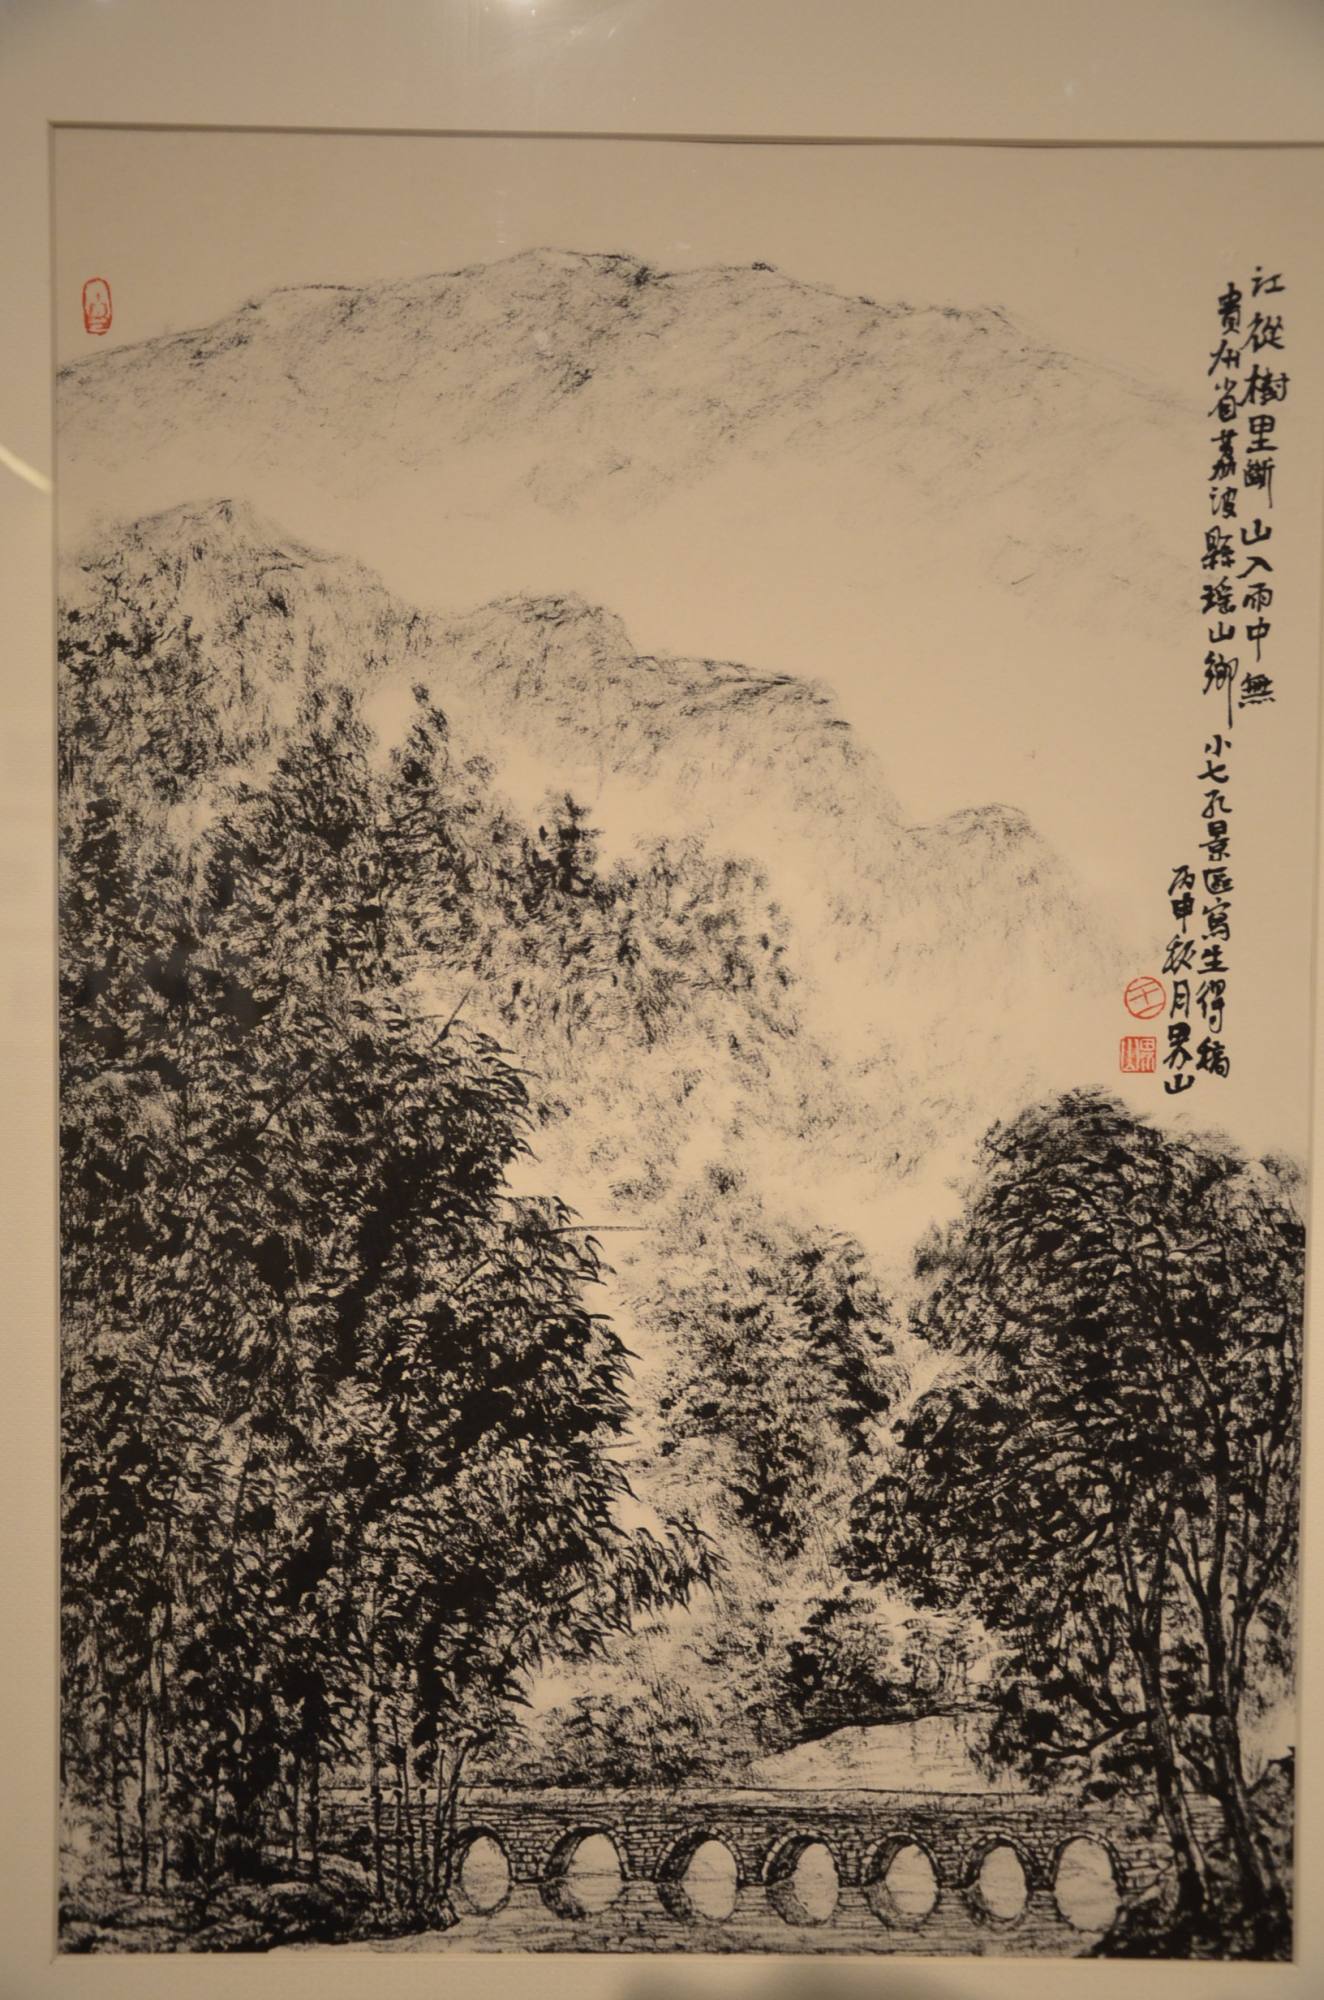 江從樹里斷山入雨中無
貴州省荔波縣瑶山鄉小七孔景區寫生得稿
丙申秋月界山